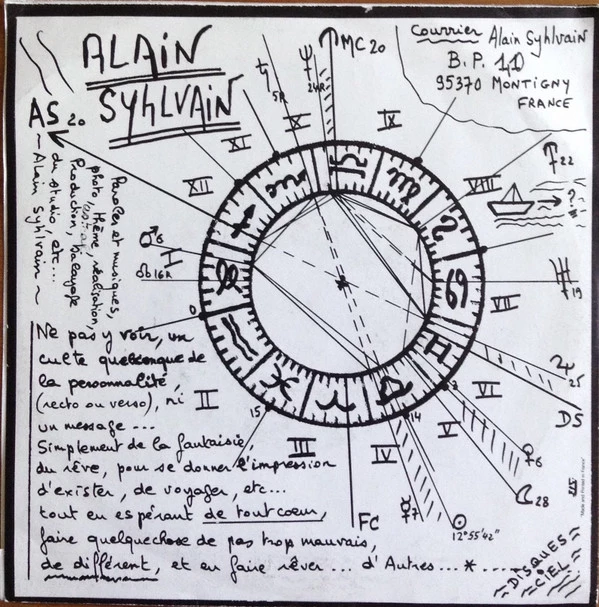 ALAIN
SYHLVAIN
MC 20
Courrier Alain Syhlvain
B.P. 11
95370 MONTIGNY
FRANCE
AS 20
5R
24R
X
IX
XI
XII
VIII
22
?
Paroles et musiques,
photo, thème, réalisation,
Production, balayage
du studio, etc...
~ Alain Syhlvain ~
6
16R
0
19
VII
25
DS
VI
3
6
28
V
14
12°55'42"
7
IV
FC
III
15
II
Ne pas y voir, un
culte quelconque de
la personnalité,
(recto ou verso), ni
un message ...
Simplement de la fantaisie,
du rêve, pour se donner l'impression
d'exister, de voyager, etc...
tout en espérant de tout coeur,
faire quelquechose de pas trop mauvais,
de différent, et en faire rêver ... d'Autres ... *
DISQUES
CIEL
"Made and Printed in France"